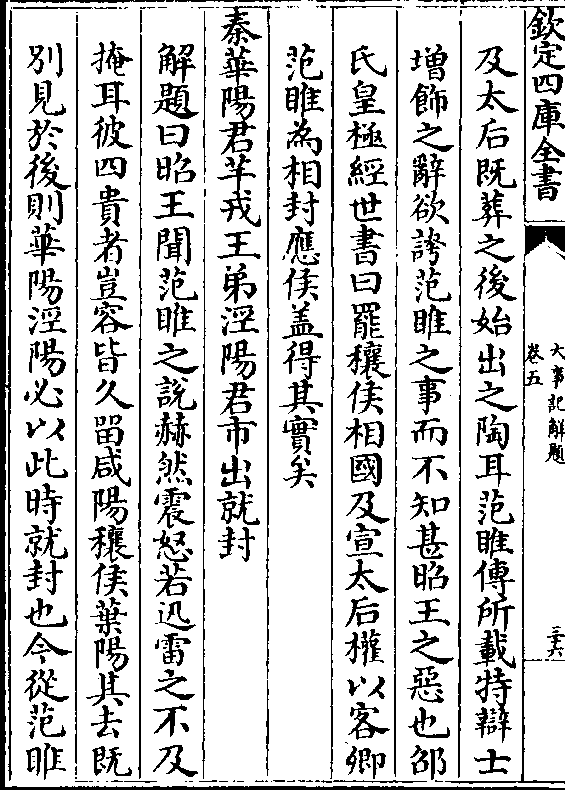 欽定四庫全書
大事記解題
卷五
三六
及太后既葬之後始出之陶耳范睢傳所載特辯士
增飾之辭欲誇范睢之事而不知甚昭王之惡也邵
氏皇極經世書曰罷穰侯相國及宣太后權以客卿
范睢為相封應侯盖得其實矣
秦華陽君芊戎王弟涇陽君市出就封
解題曰昭王聞范睢之說赫然震怒若迅雷之不及
掩耳彼四貴者豈容皆久留咸陽穰侯葉陽其去既
別見於後則華陽涇陽必以此時就封也今從范睢